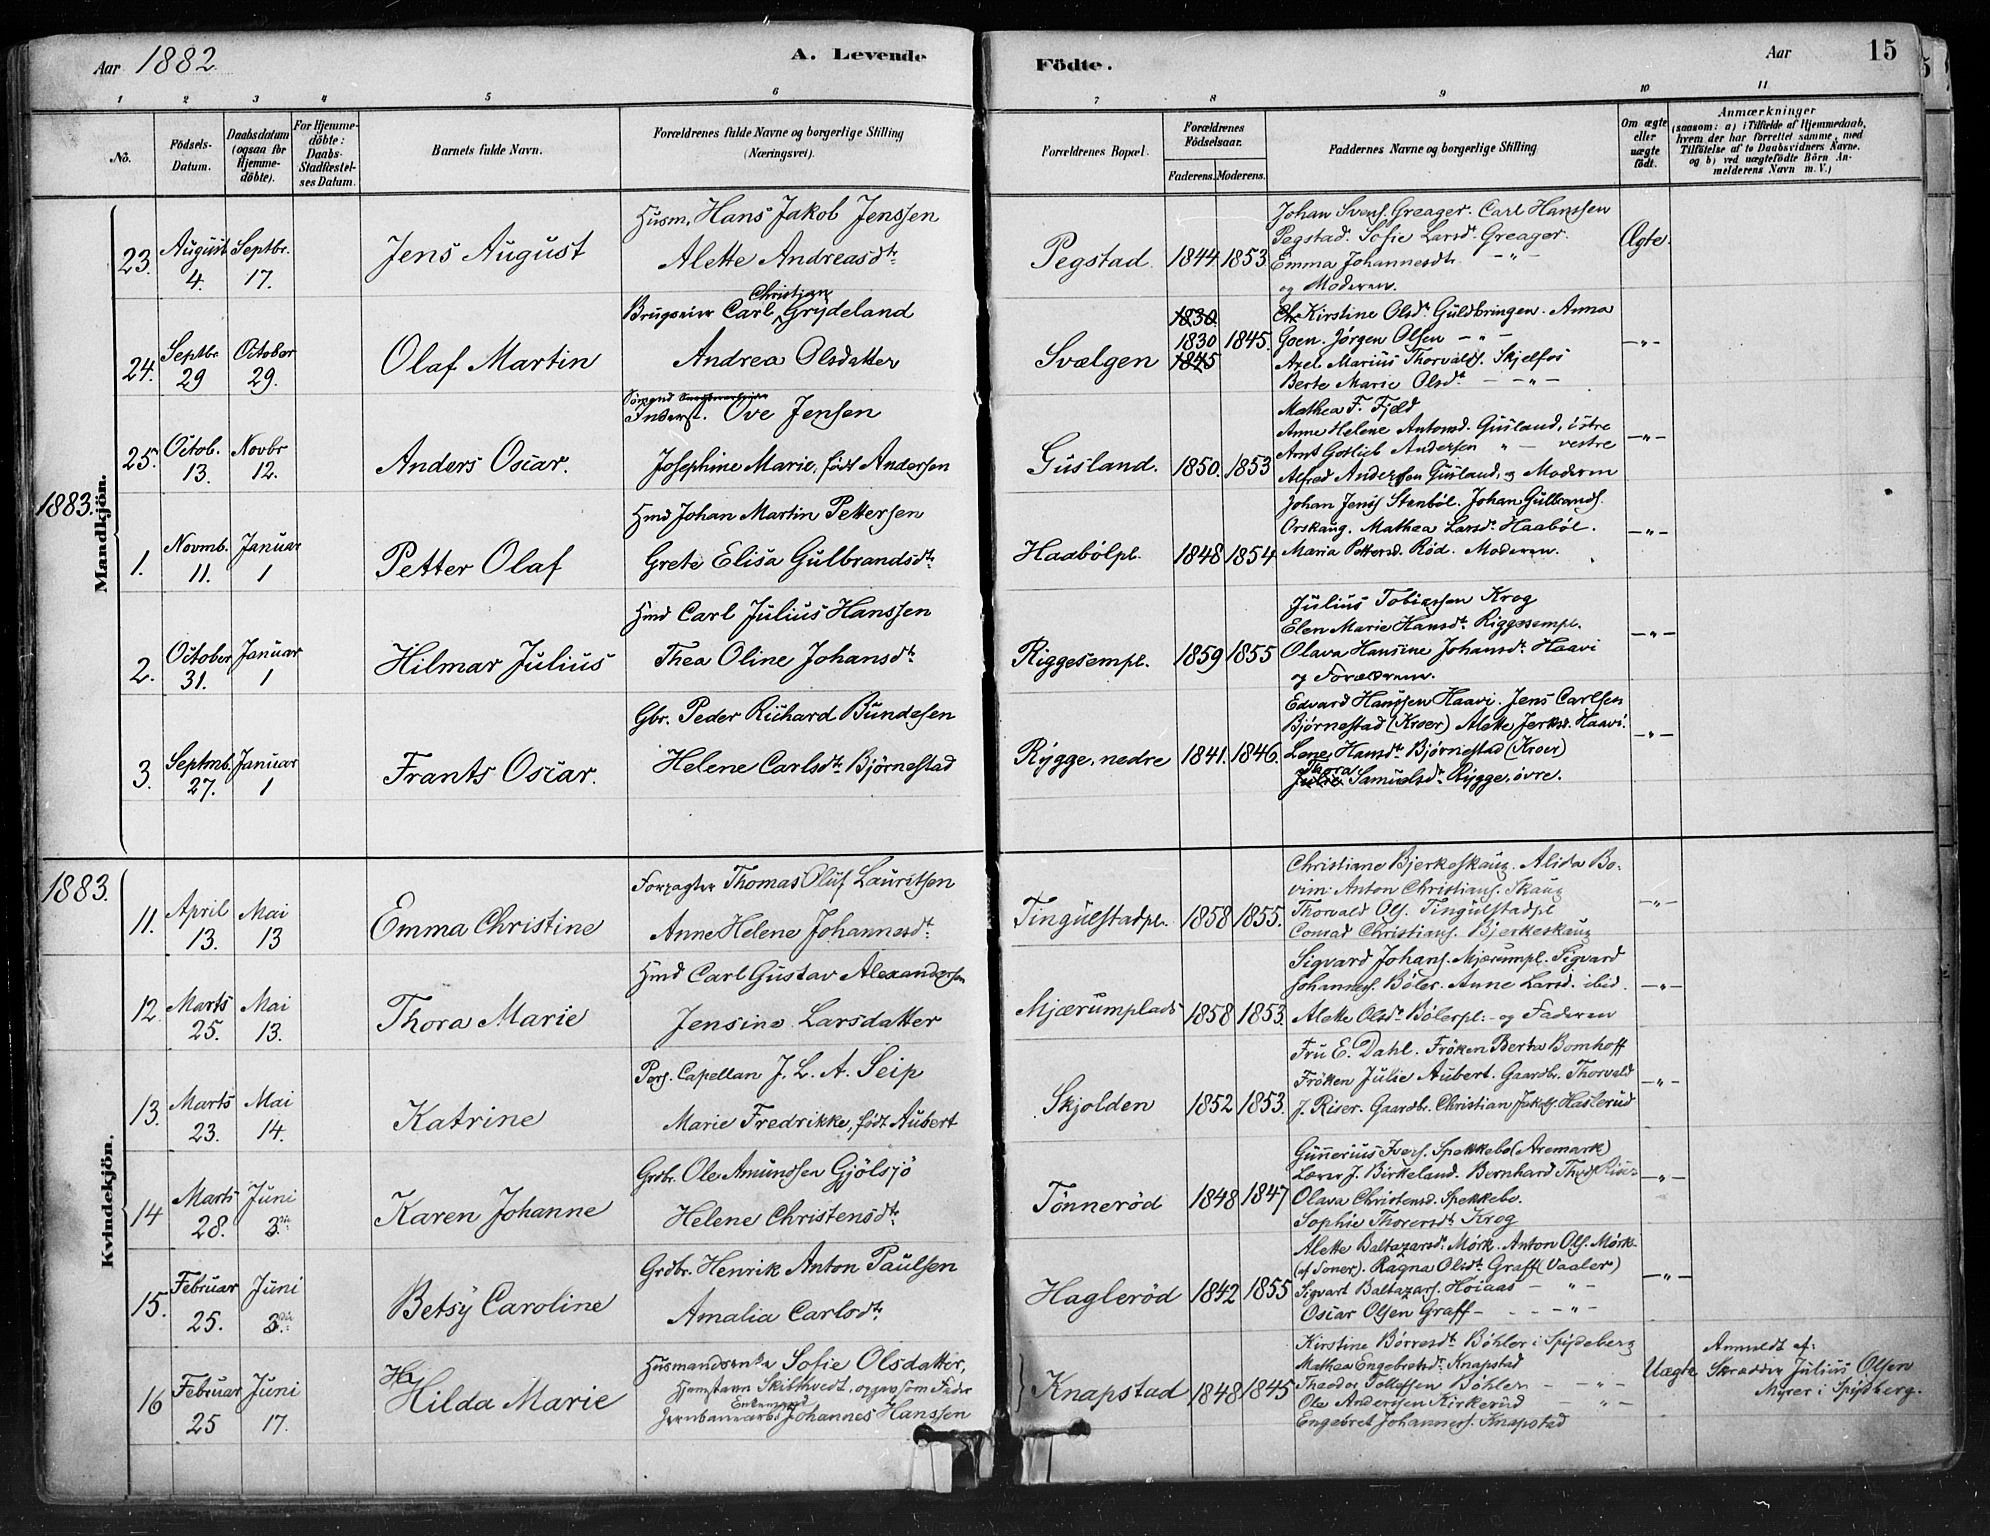 Aar 1882 A. Levende Födte. Aar 15
1 2 3 4 5 6 7 8 9 10 11
No. Födsels-Datum. Daabsdatum (ogsaa for Hjemme-döbte). For Hjemme-döbte: Daabs-Stadfæstel-ses Datum. Barnets fulde Navn. Forældrenes fulde Navne og borgerlige Stilling (Næringsvei). Forældrenes Bopæl. Forældrenes Födselsaar. Faderens. Moderens. Faddernes Navne og borgerlige Stilling Om ægte eller uægte födt. Anmærkninger (saasom: a) i Tilfælde af Hjemmedaab, hvem der har forrettet samme, med Tilföielse af to Daabsvidners Navne, og b) ved uægtefödte Börn An-melderens Navn m. V.)
Mandkjön.
23. August 4. Septbr. 17. Jens August
Husm. Hans Jakob Jenssen
Alette Andreasdtr
Pegstad 1844 1853
Johan Svens. Greager. Carl Hanssen
Pegstad. Sofie Larsdr Greager.
Emma Johannesdtr — " —
og Moderen.
Ægte.
24. Septbr. 29 October 29. Olaf Martin
Brugseier Carl Christian Grydeland
Andrea Olsdatter
Svælgen 1830. 1830 1845 1845.
Chr. Kirstine Olsdr Guldbringen. Anna
Goen. Jørgen Olsen — " —
Axel Marius Thorvalds. Skjelfos
Berte Marie Olsdr — " —
— " —
25. Octob. 13. Novbr 12. Anders Oscar.
Inderst. Ove Jensen
Josephine Marie, født Andersen
Gusland. 1850. 1853
Mathea F. Fjeld
Anne Helene Antonsd. Gusland, østre
Arnt Gotlieb Andersen " — vestre
Alfred Anderssen Gusland, og Moderen
— " —
1883.
1. Novmb. 11. Januar 1 Petter Olaf
Hmd Johan Martin Pettersen
Grete Elisa Gulbrandsdtr
Haabölpl. 1848 1854
Johan Jenss Stenböl. Johan Gulbrands.
Orskaug. Mathea Larsdr Haaböl.
Maria Pettersd. Röd. Moderen.
— " —
2. October 31. Januar 1 Hilmar Julius
Hmd Carl Julius Hanssen
Thea Oline Johansdtr
Riggesempl. 1859 1855
Julius Tobiassen Krog
Elen Marie Hansdtr Riggesempl.
Olava Hansine Johansdtr Haavi
og Forældrene.
— " —
3. Septmb. 27. Januar 1 Frants Oscar.
Gbr. Peder Richard Bundesen
Helene Carlsdtr Bjørnestad
Rygge, nedre 1841. 1846.
Edvard Hanssen Haavi. Jens Carlsen
Bjørnestad (Kroer) Alette Jerksd. Haavi.
Lene Hansdtr Bjørnestad (Kroer)
Thora Samuelsdtr Rygge, øvre.
— " —
1883.
Kvindekjön.
11. April 13. Mai 13 Emma Christine
Forpagter Thomas Oluf Lauritsen
Anne Helene Johannesdtr
Tingulstadpl. 1858 1855.
Christiane Bjerkeskaug. Alida Bo-
vim. Anton Christians. Skaug
Thorvald Ols. Tingulstadpl
Conrad Christians. Bjerkeskaug
— " —
12. Marts 25. Mai 13. Thora Marie
Hmd Carl Gustav Alexandersen
Jensine Larsdatter
Mjærumplads 1858 1853.
Sigvard Johans. Mjærumpl. Sigvard
Johanness. Böler. Anne Larsd. ibid.
Alette Olsdr Bölerpl. — og Faderen
— " —
13. Marts 23. Mai 14. Katrine
Pers. Capellan J. L. A. Seip
Marie Fredrikke, født Aubert
Skjolden 1852 1853.
Fru E. Dahl. Fröken Berta Bomhoff
Fröken Julie Aubert. Gaardbr. Thorvald
J. Riser. Gaardbr. Christian Jakobs. Haslerud
— " —
14 Marts 28. Juni 3die Karen Johanne
Grdbr. Ole Amundsen Gjölsjö
Helene Christensdtr
Tönneröd 1848 1847
Gunnerius Ivers. Spekkebo (Aremark)
Lærer J. Birkeland. Bernhard
Olava Christensd. Spekkebo.
Sophie Thorersdtr Krog
— " —
15. Februar 25. Juni 3die Betsy Caroline
Grdbr. Henrik Anton Paulsen
Amalia Carlsdtr
Hagleröd 1842 1855
Alette Baltazarsdr Mörk. Anton Ols. Mörk
(af Soner). Ragna Olsdr Graff (Vaaler)
Sigvart Baltazars. Hoiaas — " —
Oscar Olsen Graff — — " —
— " —
16 Februar 25 Juni 17. Hilda Marie
Husmandsenke Sofie Olsdatter,
Hjemstavn Skibthvedt, opgav som Fader
Enkemand
Jernbanearb. Johannes Hanssen
Knapstad 1848 1845
Kirstine Börresdtr Böhler i Spydeberg
Mathea Engebretsdr Knapstad
Theodor Tollefsen Böhler — " —
Ole Anderssen Kirkerud — " —
Engebret Johanness. Knapstad
Uægte
Anmeldt af:
Skrædder Julius Olsen
Myrer i Spydberg.